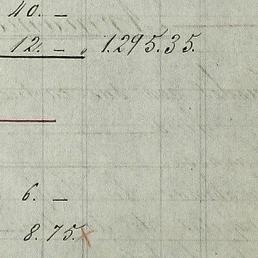 40. —
12. — 1.295.35.
6. —
8. 75. x